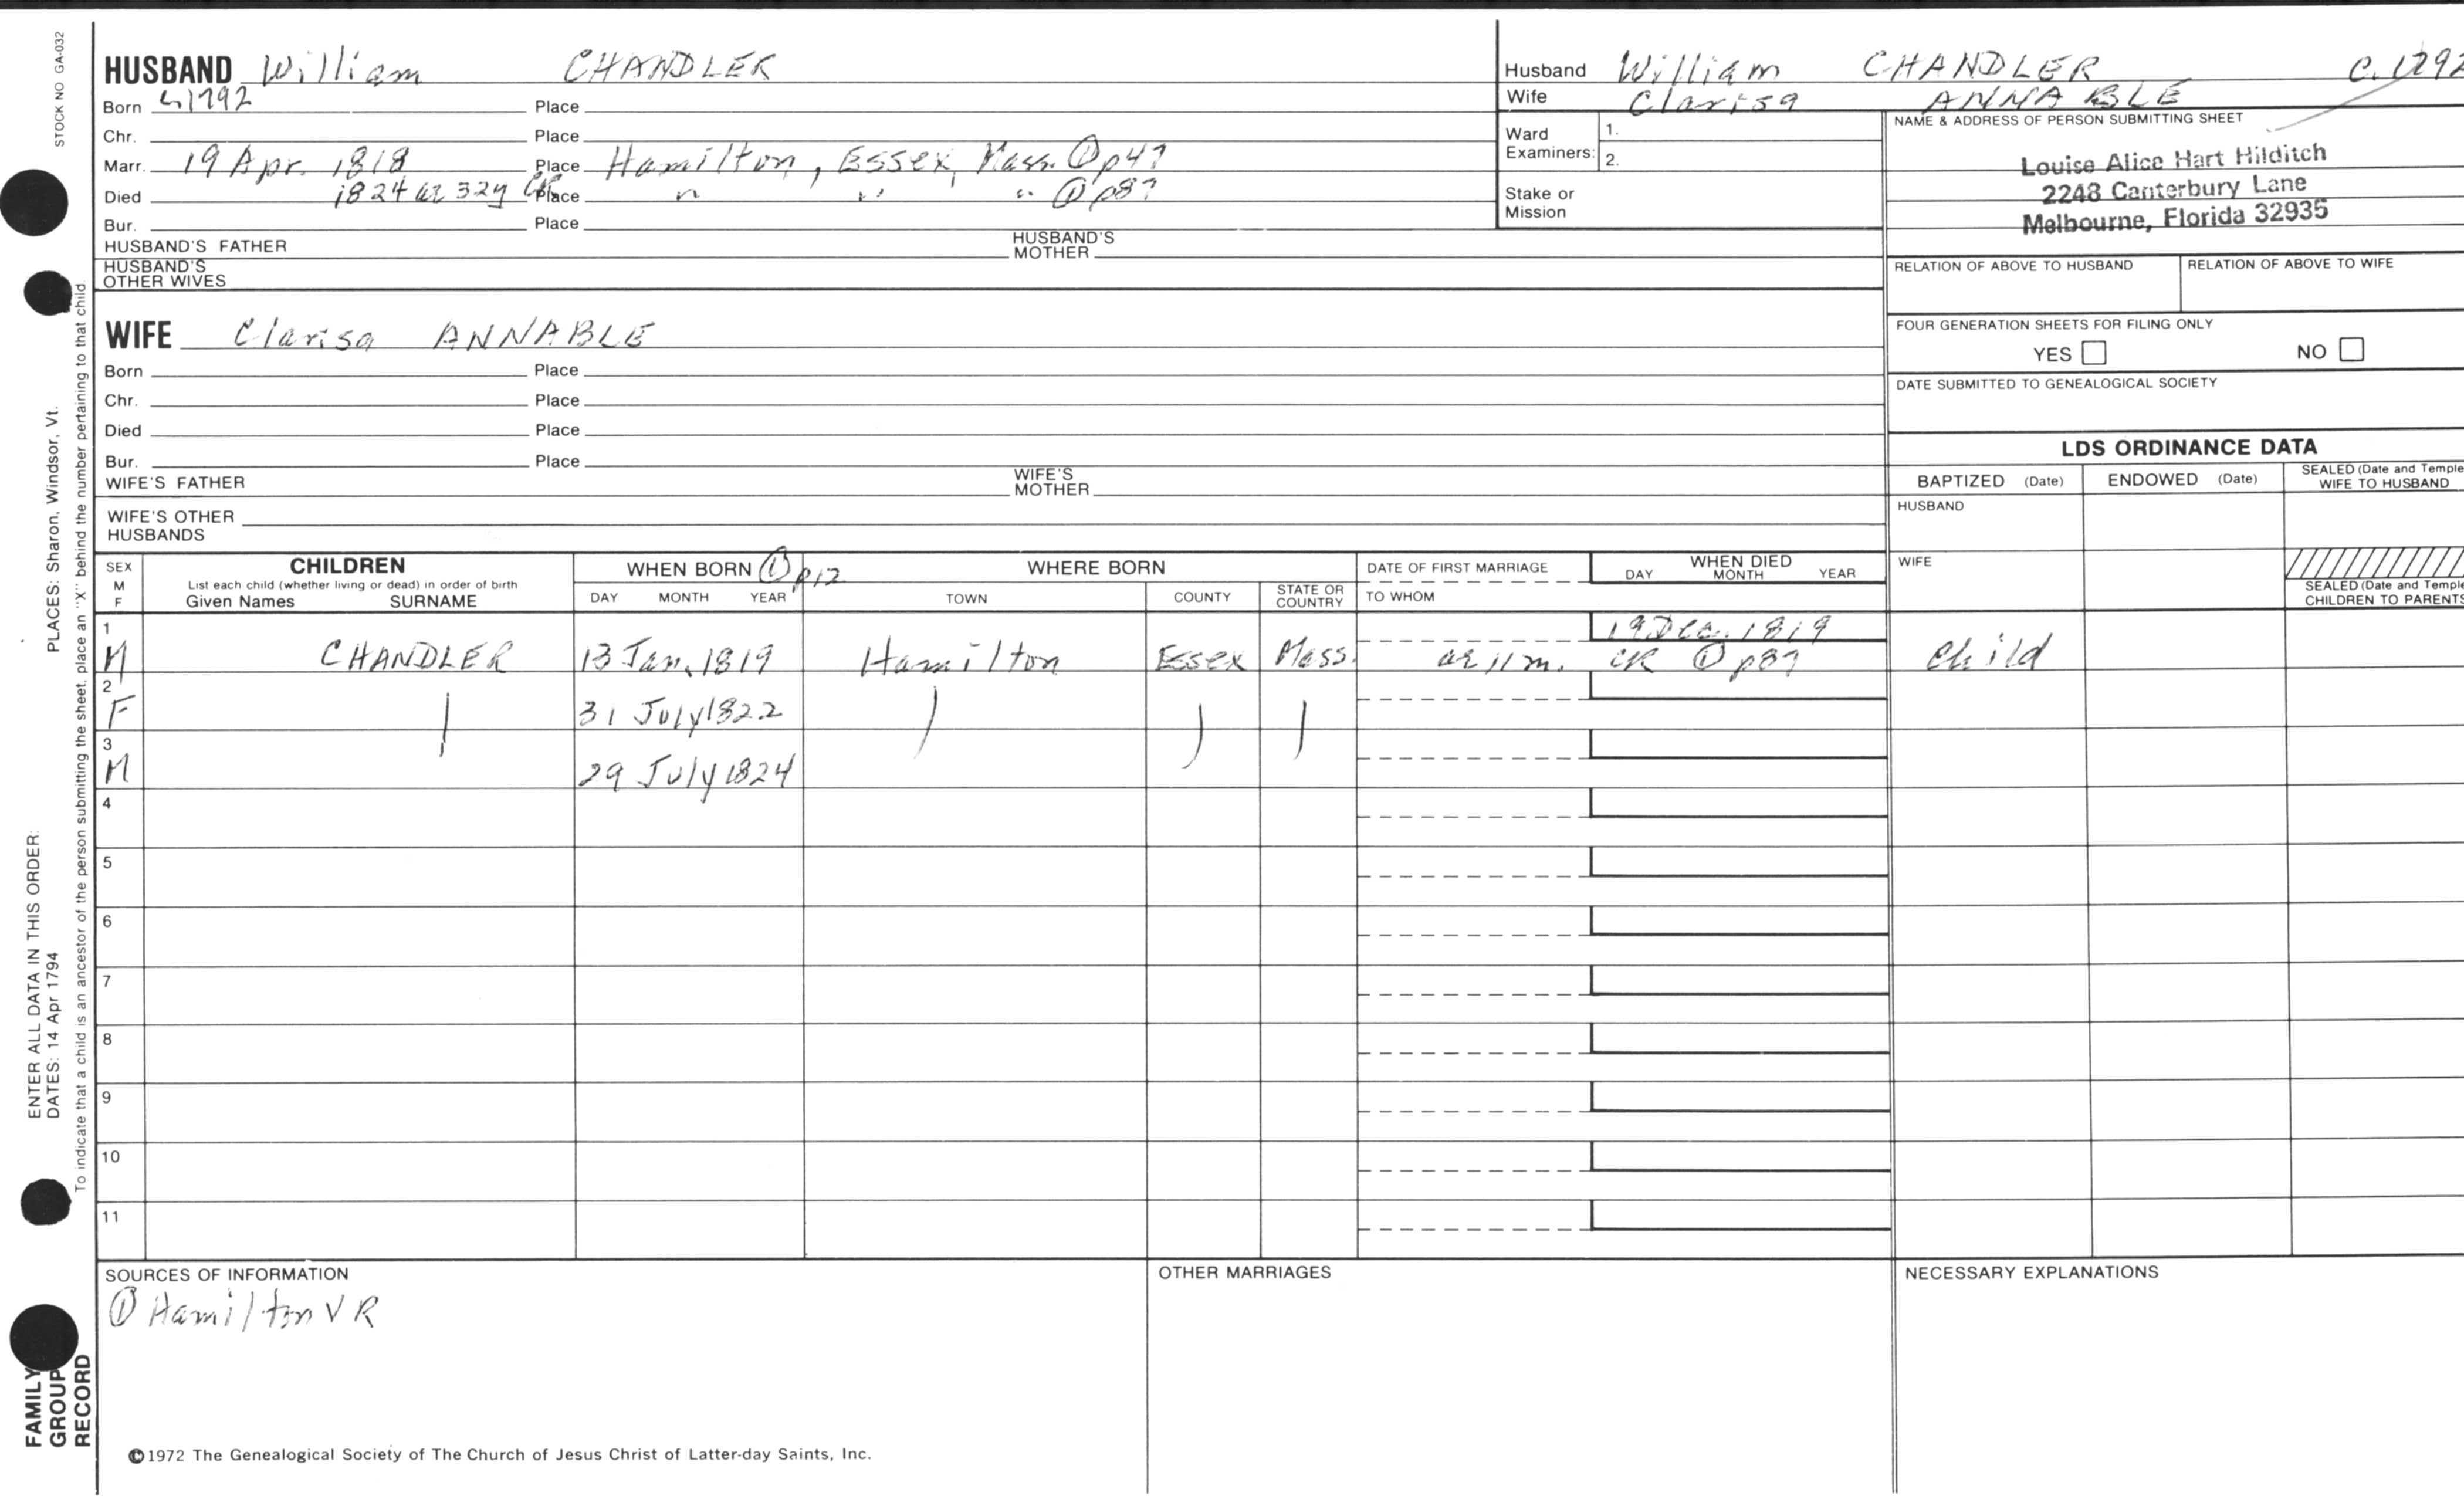 STOCK NO GA-032
HUSBAND William CHANDLER
Born c1792 Place
Chr. Place
Marr. 19 Apr. 1818 Place Hamilton, Essex, Mass. ① p47
Died 1824 ae 32y CR Place " " " ① p87
Bur. Place
HUSBAND'S FATHER HUSBAND'S MOTHER
HUSBAND'S OTHER WIVES
WIFE Clarisa ANNABLE
Born Place
Chr. Place
Died Place
Bur. Place
WIFE'S FATHER WIFE'S MOTHER
WIFE'S OTHER HUSBANDS
Husband William CHANDLER c. 1792
Wife Clarisa ANNABLE
Ward Examiners: 1.
2.
Stake or Mission
NAME & ADDRESS OF PERSON SUBMITTING SHEET
Louise Alice Hart Hilditch
2248 Canterbury Lane
Melbourne, Florida 32935
RELATION OF ABOVE TO HUSBAND RELATION OF ABOVE TO WIFE
FOUR GENERATION SHEETS FOR FILING ONLY
YES NO
DATE SUBMITTED TO GENEALOGICAL SOCIETY
LDS ORDINANCE DATA
BAPTIZED (Date) ENDOWED (Date) SEALED (Date and Temple) WIFE TO HUSBAND
HUSBAND
WIFE
SEALED (Date and Temple) CHILDREN TO PARENTS
SEX M F CHILDREN WHEN BORN ① p12 WHERE BORN DATE OF FIRST MARRIAGE WHEN DIED
List each child (whether living or dead) in order of birth
Given Names SURNAME DAY MONTH YEAR TOWN COUNTY STATE OR COUNTRY TO WHOM DAY MONTH YEAR
1 19 Dec. 1819
M CHANDLER 13 Jan. 1819 Hamilton Essex Mass. ae 11m. CR ① p87 Child
2
F 31 July 1822
3
M 29 July 1824
4
5
6
7
8
9
10
11
SOURCES OF INFORMATION OTHER MARRIAGES NECESSARY EXPLANATIONS
① Hamilton VR
©1972 The Genealogical Society of The Church of Jesus Christ of Latter-day Saints, Inc.
PLACES: Sharon, Windsor, Vt.
ENTER ALL DATA IN THIS ORDER:
DATES: 14 Apr 1794
To indicate that a child is an ancestor of the person submitting the sheet, place an "X" behind the number pertaining to that child
FAMILY GROUP RECORD